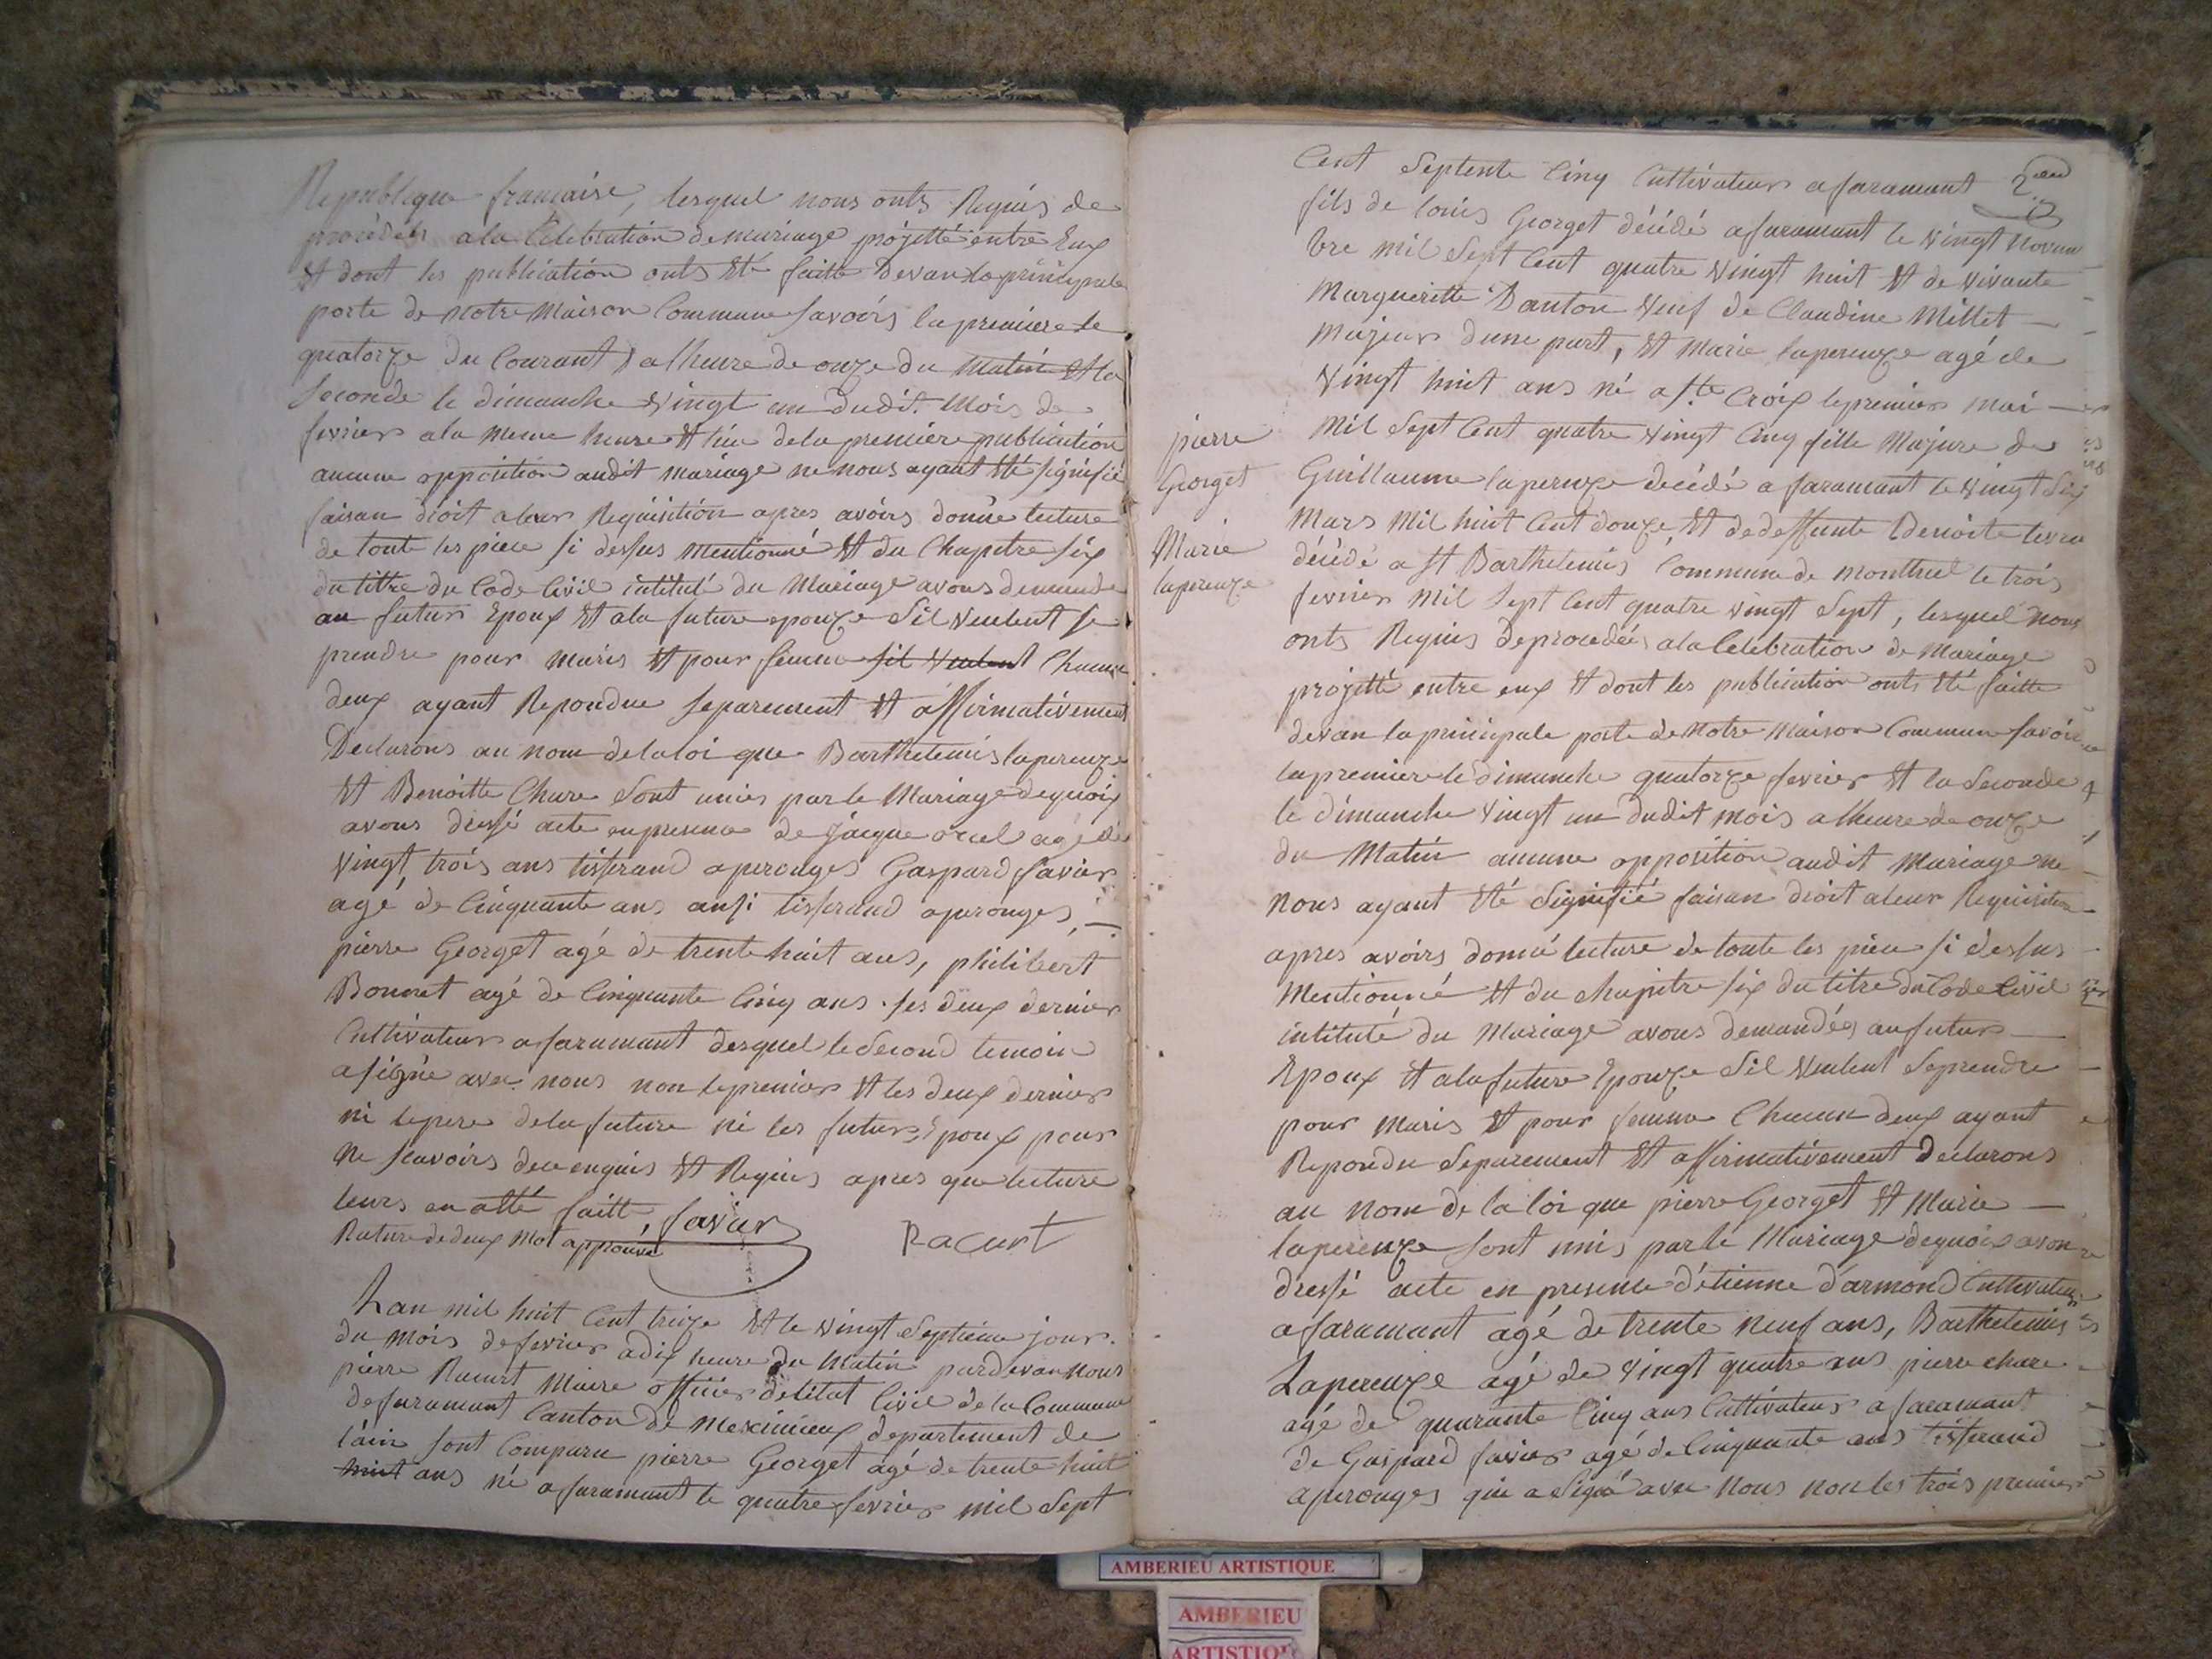 Republique francaise, lesquel nous onts Requis de
procédér ala Célébration de mariage projetté entre Eux
Et dont les publication onts Eté faitte devan la principale
porte de notre Maison Commune Savoirs la premiere le
quatorze du Courant a lheure de onze du Matin Et la
Seconde le dimanche vingt un dudit Mois de
fevrier ala meme heure Et lieu dela premiere publication
aucune opposition audit mariage ne nous ayant Eté signifié
faisan droit aleur Requisition apres avoirs donné lecture
de toute les piece si dessus mentionné Et du Chapitre six
du titre du Code Civil intitulé du Mariage avons demandé
au futur Epoux Et ala future epouze Sil veulent se
prendre pour maris Et pour femme sil veulent Chacun
deux ayant Repondue separement Et affirmativement
Declarons au nom dela loi que Barthelemis laperouze
Et Benoitte Chare Sont unis par le Mariage dequoix
avons dressé acte en presence de Jacque orcel agé de
vingt trois ans tisserand aperouges Gaspard favier
agé de Cinquante ans ausi tisserand aperouges,
pierre Georget agé de trente huit ans, philibert
Bonnet agé de Cinquante Cinq ans les deux dernier
Cultivateur afaramant desquel le Second temoin
a signé avec nous non le premier Et les deux dernier
ni le pere dela future ni les futurs Epoux pour
ne scavoirs dece enquis Et Requis apres que lecture
leurs en a Eté faitte,
favier
Racurt
Rature de deux Mot approuvé
Lan mil huit Cent treize Et le vingt Septieme jour
du mois de fevrier a dix heure du Matin pardevan nous
pierre Racurt Maire officier deletat Civil de la Commune
de faramant Canton de Meximieux departement de
l'ain sont Comparu pierre Georget agé de trente huit
huit ans né afaramant le quatre fevrier mil Sept
Cent Septente Cinq Cultivateur afaramant
fils de louis Georget décédé afaramant le vingt Novem
bre mil Sept Cent quatre vingt huit Et de vivante
Margueritte Danton veuf de Claudine Millet
Majeur dune part, Et Marie laperouze agé de
vingt huit ans né a Ste Croix le premier mai
Mil Sept Cent quatre vingt Cinq fille Majure de
Guillaume laperouze decédé a faramant le vingt Six
Mars Mil huit Cent douze, Et de deffunte Benoite
décédé a St Barthelemis Commune de Montluel le trois
fevrier Mil Sept Cent quatre vingt Sept, lesquel nous
onts Requis de procedées ala Celébration de Mariage
projetté entre eux Et dont les publication onts Eté faitte
devan la principale porte de Notre Maison Commune Savoir
la premiere le dimanche quatorze fevrier Et la Seconde
le dimanche vingt un dudit mois a lheure de onze
du Matin aucune opposition audit Mariage ne
nous ayant Eté Signifié faisan droit aleur Requisition
apres avoirs donné lecture de toute les piece si dessus
Mentionné Et du chapitre six du titre du Code Civil
intitulé du Mariage avons demandées au futur
Epoux Et ala future Epouze Sil veulent Se prendre
pour Maris Et pour femme Chacun deux ayant
Repondu Separement Et affirmativement declarons
au Nom de la loi que pierre Georget Et Marie
laperouze Sont unis par le Mariage dequoi avons
dressé acte en presence d'étienne d'armond Cultivateur
afaramant agé de trente neuf ans, Barthelemis
Laperouze agé de vingt quatre ans pierre chare
agé de quarante Cinq ans Cultivateur a faramant
de Gaspard favier agé de Cinquante ans tisserand
aperouges qui a Signé avec Nous non les trois premier
pierre
Georget
Marie
laperouze
AMBERIEU ARTISTIQUE
AMBERIEU
ARTISTIQUE